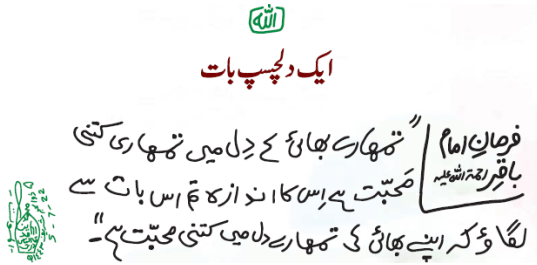 الله
ایک دلچسپ بات
فرمانِ امام باقر رحمۃ اللہ علیہ
"تمھارے بھائی کے دِل میں تمھاری کتنی
مَحبّت ہے اِس کا اندازہ تم اس بات سے
لگاؤ کہ اپنے بھائی کی تمھارے دل میں کتنی محبّت ہے"۔
5-7-22